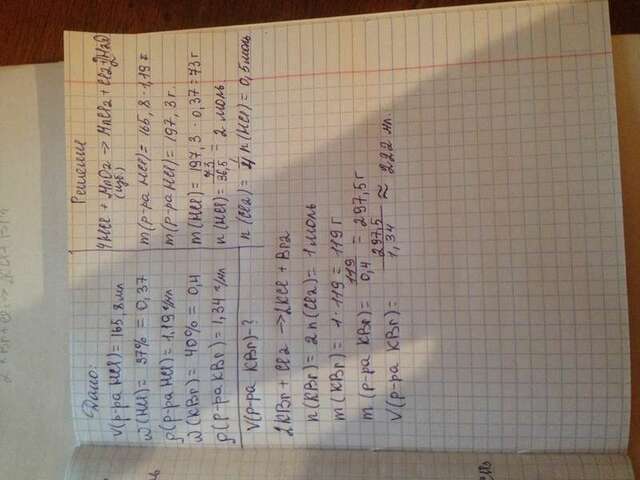 2KBr + Cl2 → 2KCl + Br2
Дано:
V(р-ра HCl) = 165,8 мл
ω(HCl) = 37% = 0,37
ρ(р-ра HCl) = 1,19 г/мл
ω(KBr) = 40% = 0,4
ρ(р-ра KBr) = 1,34 г/мл
V(р-ра KBr) - ?
Решение
4HCl + MnO2 → MnCl2 + Cl2 + 2H2O
(изб.)
m(р-ра HCl) = 165,8 · 1,19 г
m(р-ра HCl) = 197,3 г.
m(HCl) = 197,3 · 0,37 = 73 г
n(HCl) = 73/36,5 = 2 моль
n(Cl2) = 1/4 n(HCl) = 0,5 моль
2KBr + Cl2 → 2KCl + Br2
n(KBr) = 2n(Cl2) = 1 моль
m(KBr) = 1 · 119 = 119 г
m(р-ра KBr) = 119/0,4 = 297,5 г
V(р-ра KBr) = 297,5/1,34 ≈ 222 мл.